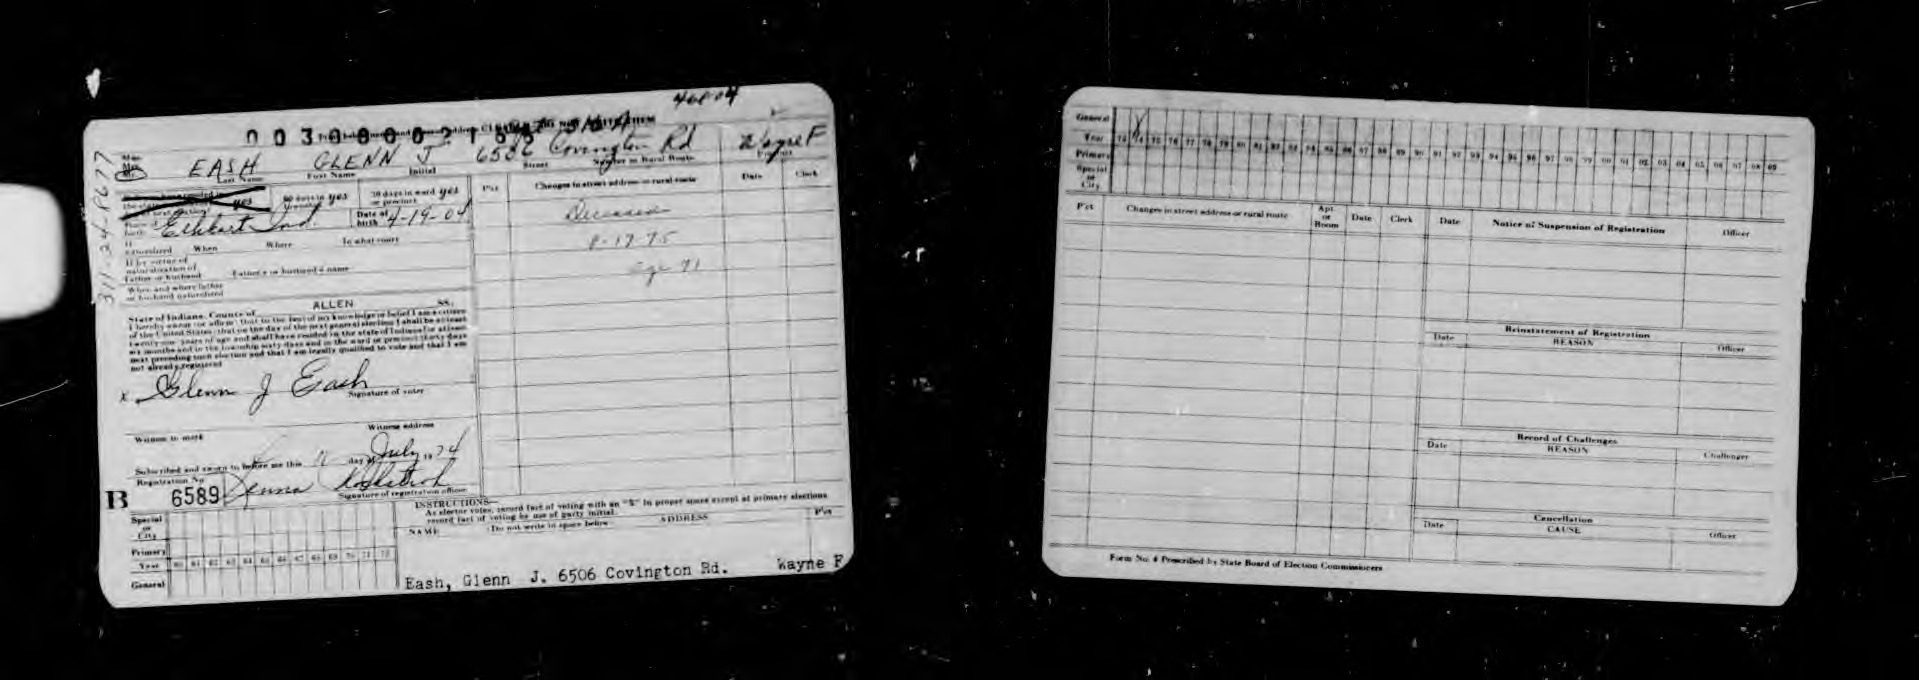 46804
Miss
Mrs.
Mr.
EASH GLENN J 6506 Covington Rd Wayne F
Last Name First Name Initial Street Number or Rural Route Precinct
yes 60 days in yes 30 days in ward yes
township or precinct
Place of birth Elkhart Ind. Date of birth 4-19-04
If naturalized When Where In what court
If by virtue of
naturalization of
father or husband Father's or husband's name
When and where father
or husband naturalized
State of Indiana, County of ALLEN SS.
I hereby swear (or affirm) that to the best of my knowledge or belief I am a citizen
of the United States; that on the day of the next general election I shall be at least
twenty-one years of age and shall have resided in the state of Indiana for at least
six months and in the township sixty days and in the ward or precinct thirty days
next preceding such election and that I am legally qualified to vote and that I am
not already registered
X Glenn J Eash
Signature of voter
Witness to mark Witness address
Subscribed and sworn to before me this 11 day of July 1974
Registration No.
B 6589
Signature of registration officer
Special
or
City
Primary
Year 60 61 62 63 64 65 66 67 68 69 70 71 72
General
P'ct Changes in street address or rural route Date Clerk
Deceased
8-17-75
age 71
INSTRUCTIONS—
As elector votes, record fact of voting with an "X" in proper space except at primary elections
record fact of voting by use of party initial.
NAME (Do not write in space below) ADDRESS P'ct
Eash, Glenn J. 6506 Covington Rd. Wayne F
General
Year 73 74 75 76 77 78 79 80 81 82 83 84 85 86 87 88 89 90 91 92 93 94 95 96 97 98 99 00 01 02 03 04 05 06 07 08 09
Primary
Special
or
City
P'ct Changes in street address or rural route Apt. or Room Date Clerk
Date Notice of Suspension of Registration Officer
Reinstatement of Registration
Date REASON Officer
Record of Challenges
Date REASON Challenger
Cancellation
Date CAUSE Officer
Form No. 4 Prescribed by State Board of Election Commissioners